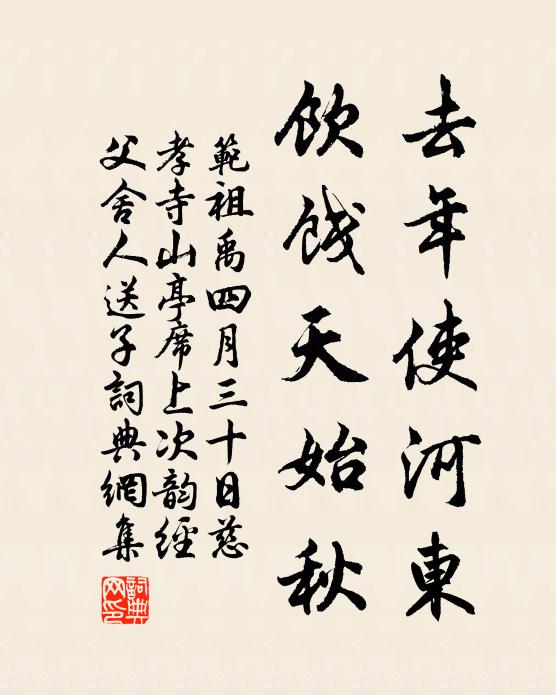 去年使河東
飲餞天始秋
範祖禹四月三十日慈
孝寺山亭席上次韵經
父舍人送子詞典網集
詞典网印